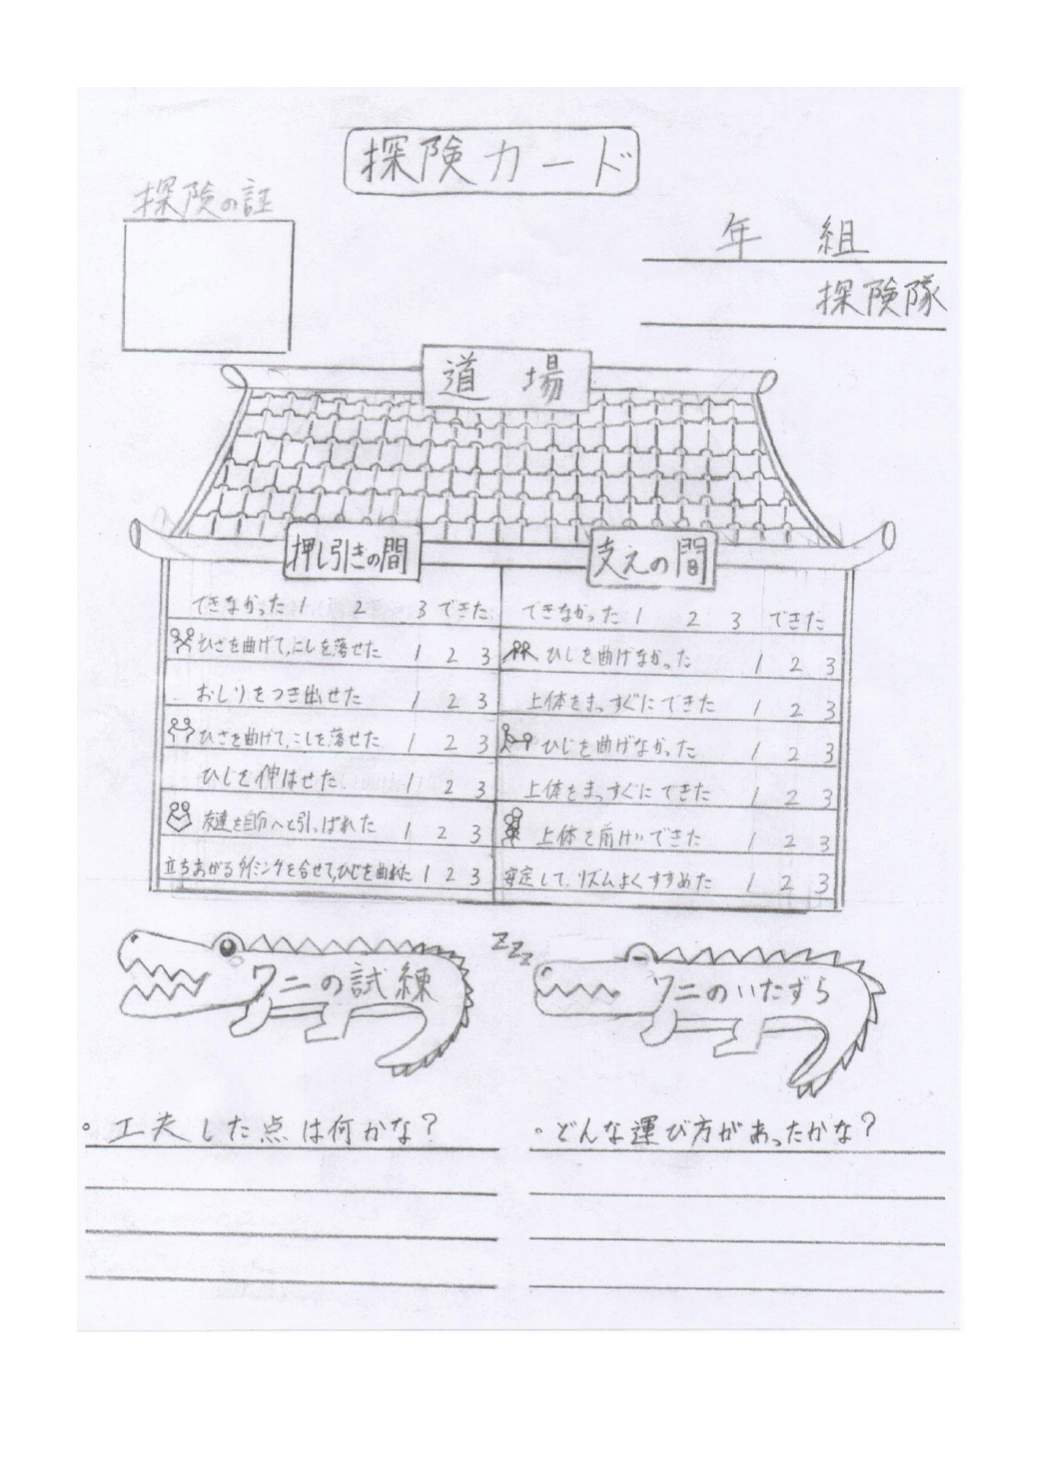 探険カード
探険の証
年 組
探険隊
道場
押し引きの間
支えの間
できなかった 1 2 3 できた
できなかった 1 2 3 できた
ひざを曲げて、こしを落せた 1 2 3
ひじを曲げなかった 1 2 3
おしりをつき出せた 1 2 3
上体をまっすぐにできた 1 2 3
ひざを曲げて、こしを落せた 1 2 3
ひじを曲げなかった 1 2 3
ひじを伸ばせた 1 2 3
上体をまっすぐにできた 1 2 3
友達を自分へと引っぱれた 1 2 3
上体を前に できた 1 2 3
立ちあがるタイミングを合せて、ひじを曲れた 1 2 3
安定して、リズムよくすすめた 1 2 3
ワニの試練
zzz
ワニのいたずら
。工夫した点は何かな？
。どんな運び方があったかな？